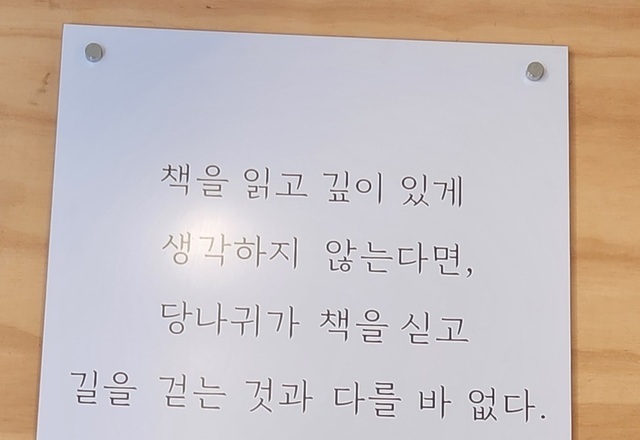 책을 읽고 깊이 있게
생각하지 않는다면,
당나귀가 책을 싣고
길을 걷는 것과 다를 바 없다.